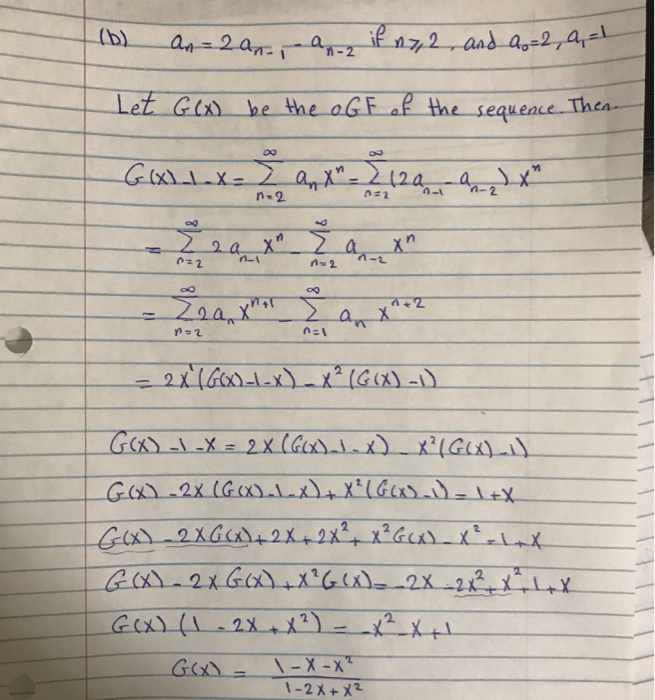 (b) aₙ = 2 aₙ₋₁ - aₙ₋₂ if n ⩾ 2, and a₀=2, a₁=1
Let G(x) be the OGF of the sequence. Then.
G(x)-1-x = ∑_{n=2}^{∞} aₙ xⁿ = ∑_{n=2}^{∞} (2aₙ₋₁ - aₙ₋₂) xⁿ
= ∑_{n=2}^{∞} 2aₙ₋₁ xⁿ - ∑_{n=2}^{∞} aₙ₋₂ xⁿ
= ∑_{n=2}^{∞} 2aₙ xⁿ⁺¹ - ∑_{n=1}^{∞} aₙ xⁿ⁺²
= 2x¹(G(x)-1-x) - x²(G(x)-1)
G(x)-1-x = 2x(G(x)-1-x) - x²(G(x)-1)
G(x)-2x(G(x)-1-x)+x²(G(x)-1)=1+x
G(x)-2xG(x)+2x+2x²+x²G(x)-x²=1+x
G(x)-2xG(x)+x²G(x)=-2x-2x²+x²+1+x
G(x)(1-2x+x²)=-x²-x+1
G(x) = \frac{1-x-x²}{1-2x+x²}